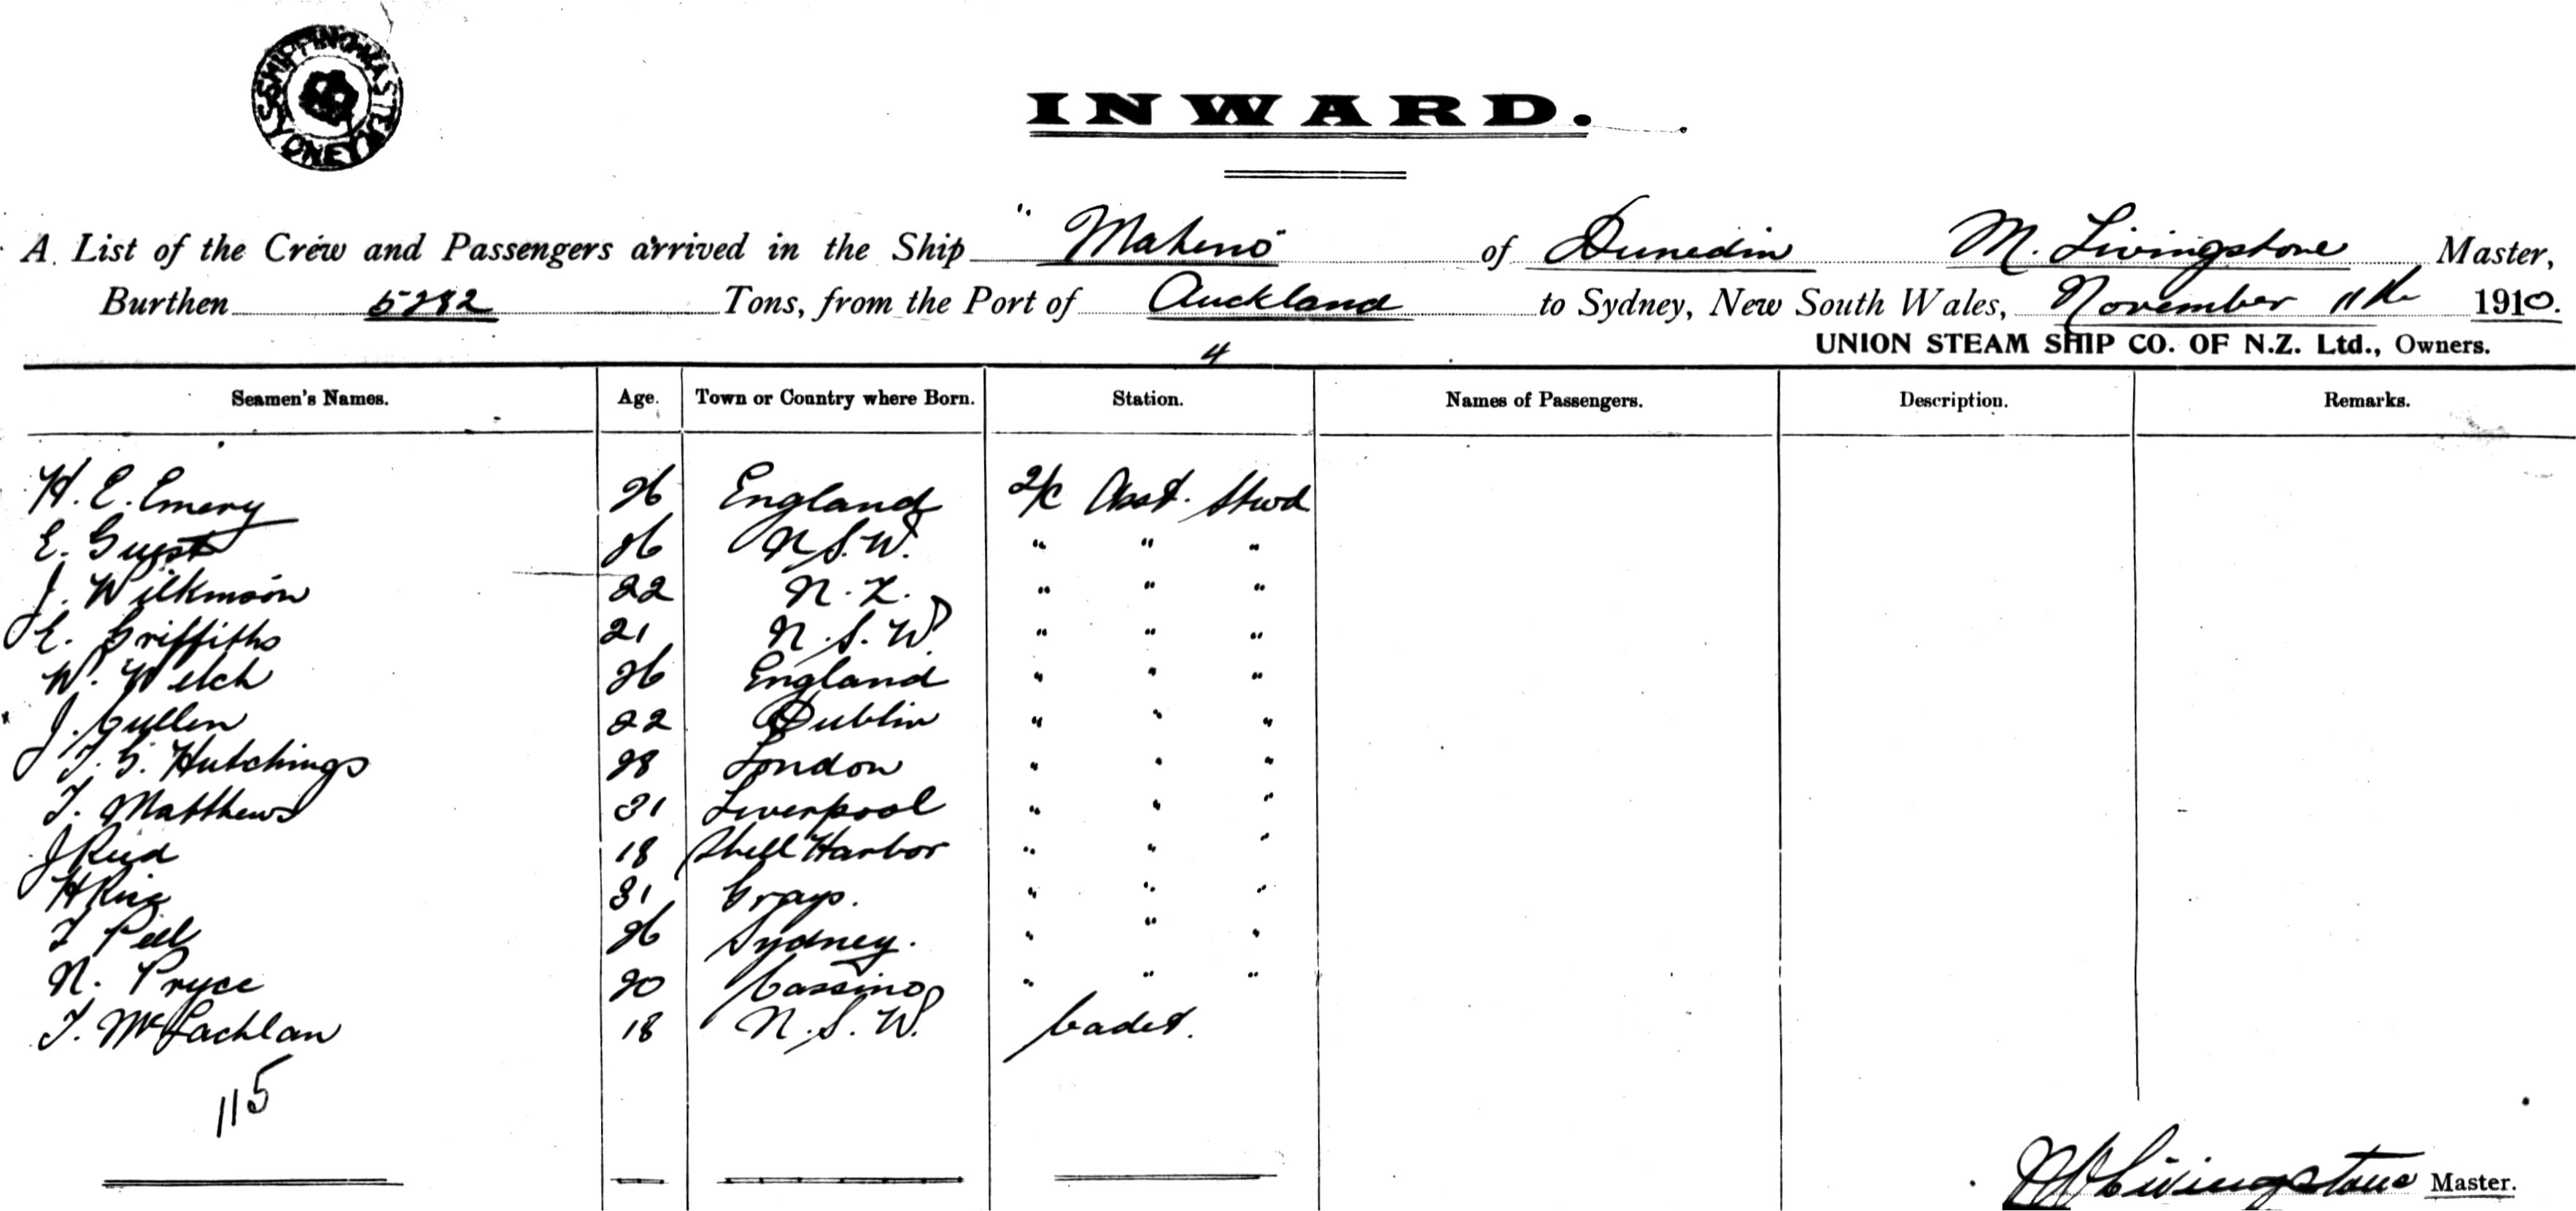 SHIPPING MASTER SYDNEY
INWARD.
A List of the Crew and Passengers arrived in the Ship "Maheno" of Dunedin M. Livingstone Master,
Burthen 5282 Tons, from the Port of Auckland to Sydney, New South Wales, November 11th 1910.
UNION STEAM SHIP CO. OF N.Z. Ltd., Owners.
4
Seamen's Names. Age. Town or Country where Born. Station. Names of Passengers. Description. Remarks.
H. E. Emery 26 England 2/c Asst. Stwd
E. Guest 26 N.S.W. " " "
J. Wilkinson 22 N.Z. " " "
E. Griffiths 21 N.S.W. " " "
W. Welch 26 England " " "
J. Cullen 22 Dublin " " "
T. G. Hutchings 28 London " " "
T. Matthews 31 Liverpool " " "
J Reid 18 Shell Harbor " " "
H King 31 Grays. " " "
T Pell 26 Sydney. " " "
N. Pryce 20 Cassino " " "
T. McLachlan 18 N.S.W. Cadet.
115
M Livingstone Master.